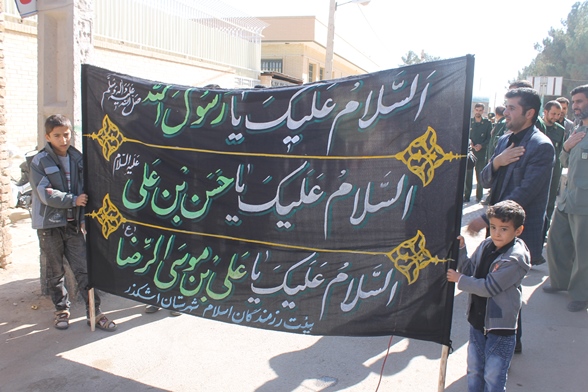 السلام علیک یا رسول الله
صلی الله علیه وآله وسلم
السلام علیک یا حسن بن علی
علیه السلام
السلام علیک یا علی بن موسی الرضا (ع)
هیئت رزمندگان اسلام شهرستان اشکذر